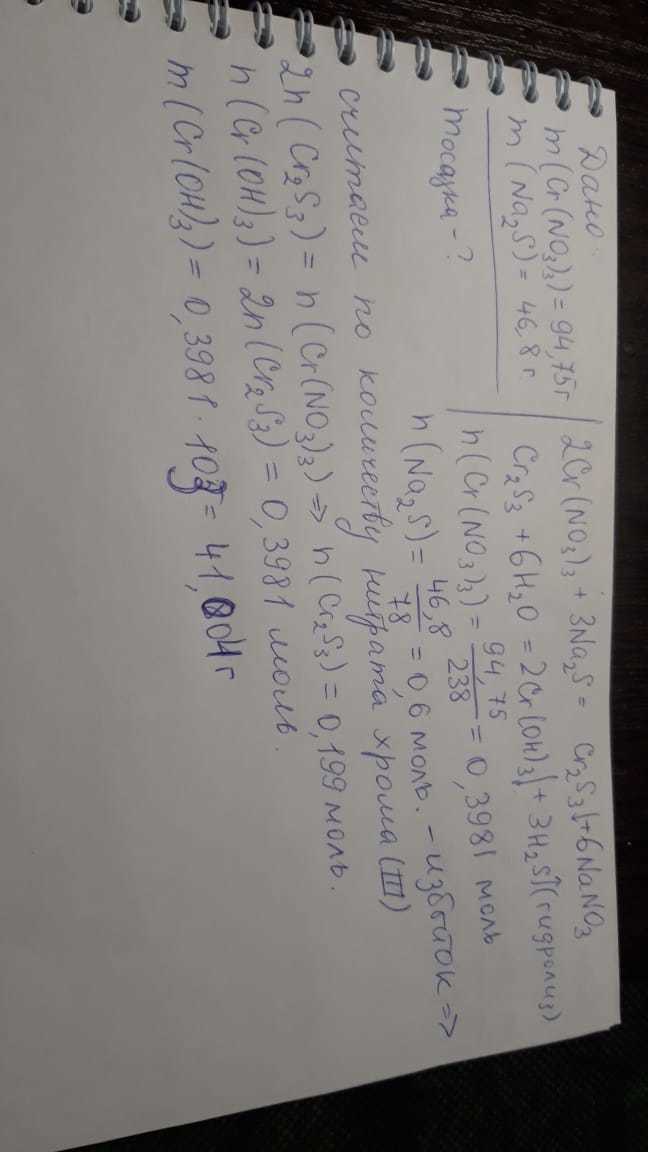 Дано:
m(Cr(NO3)3) = 94,75г
m(Na2S) = 46,8 г
mосадка - ?
2Cr(NO3)3 + 3Na2S = Cr2S3↓ + 6NaNO3
Cr2S3 + 6H2O = 2Cr(OH)3↓ + 3H2S↑(гидролиз)
n(Cr(NO3)3) = 94,75/238 = 0,3981 моль
n(Na2S) = 46,8/78 = 0,6 моль. - избыток =>
считаем по количеству нитрата хрома (III)
2n(Cr2S3) = n(Cr(NO3)3) => n(Cr2S3) = 0,199 моль.
n(Cr(OH)3) = 2n(Cr2S3) = 0,3981 моль.
m(Cr(OH)3) = 0,3981 · 103 = 41,004г